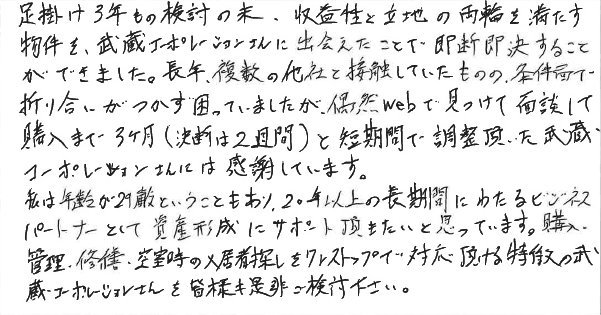 足掛け3年もの検討の末、収益性と立地の両輪を満たす
物件を、武蔵コーポレーションさんに出会えたことで即断即決すること
ができました。長年、複数の他社と接触していたものの、条件面で
折り合いがつかず困っていましたが、偶然webで見つけて面談して
購入まで3ヶ月(決断は2週間)と短期間で調整頂いた武蔵
コーポレーションさんには感謝しています。
私は年齢が29歳ということもあり、20年以上の長期間にわたるビジネス
パートナーとして資産形成にサポート頂きたいと思っています。購入、
管理、修繕、空室時の入居者探しをワンストップで対応頂ける特徴の武
蔵コーポレーションさんを皆様も是非ご検討下さい。